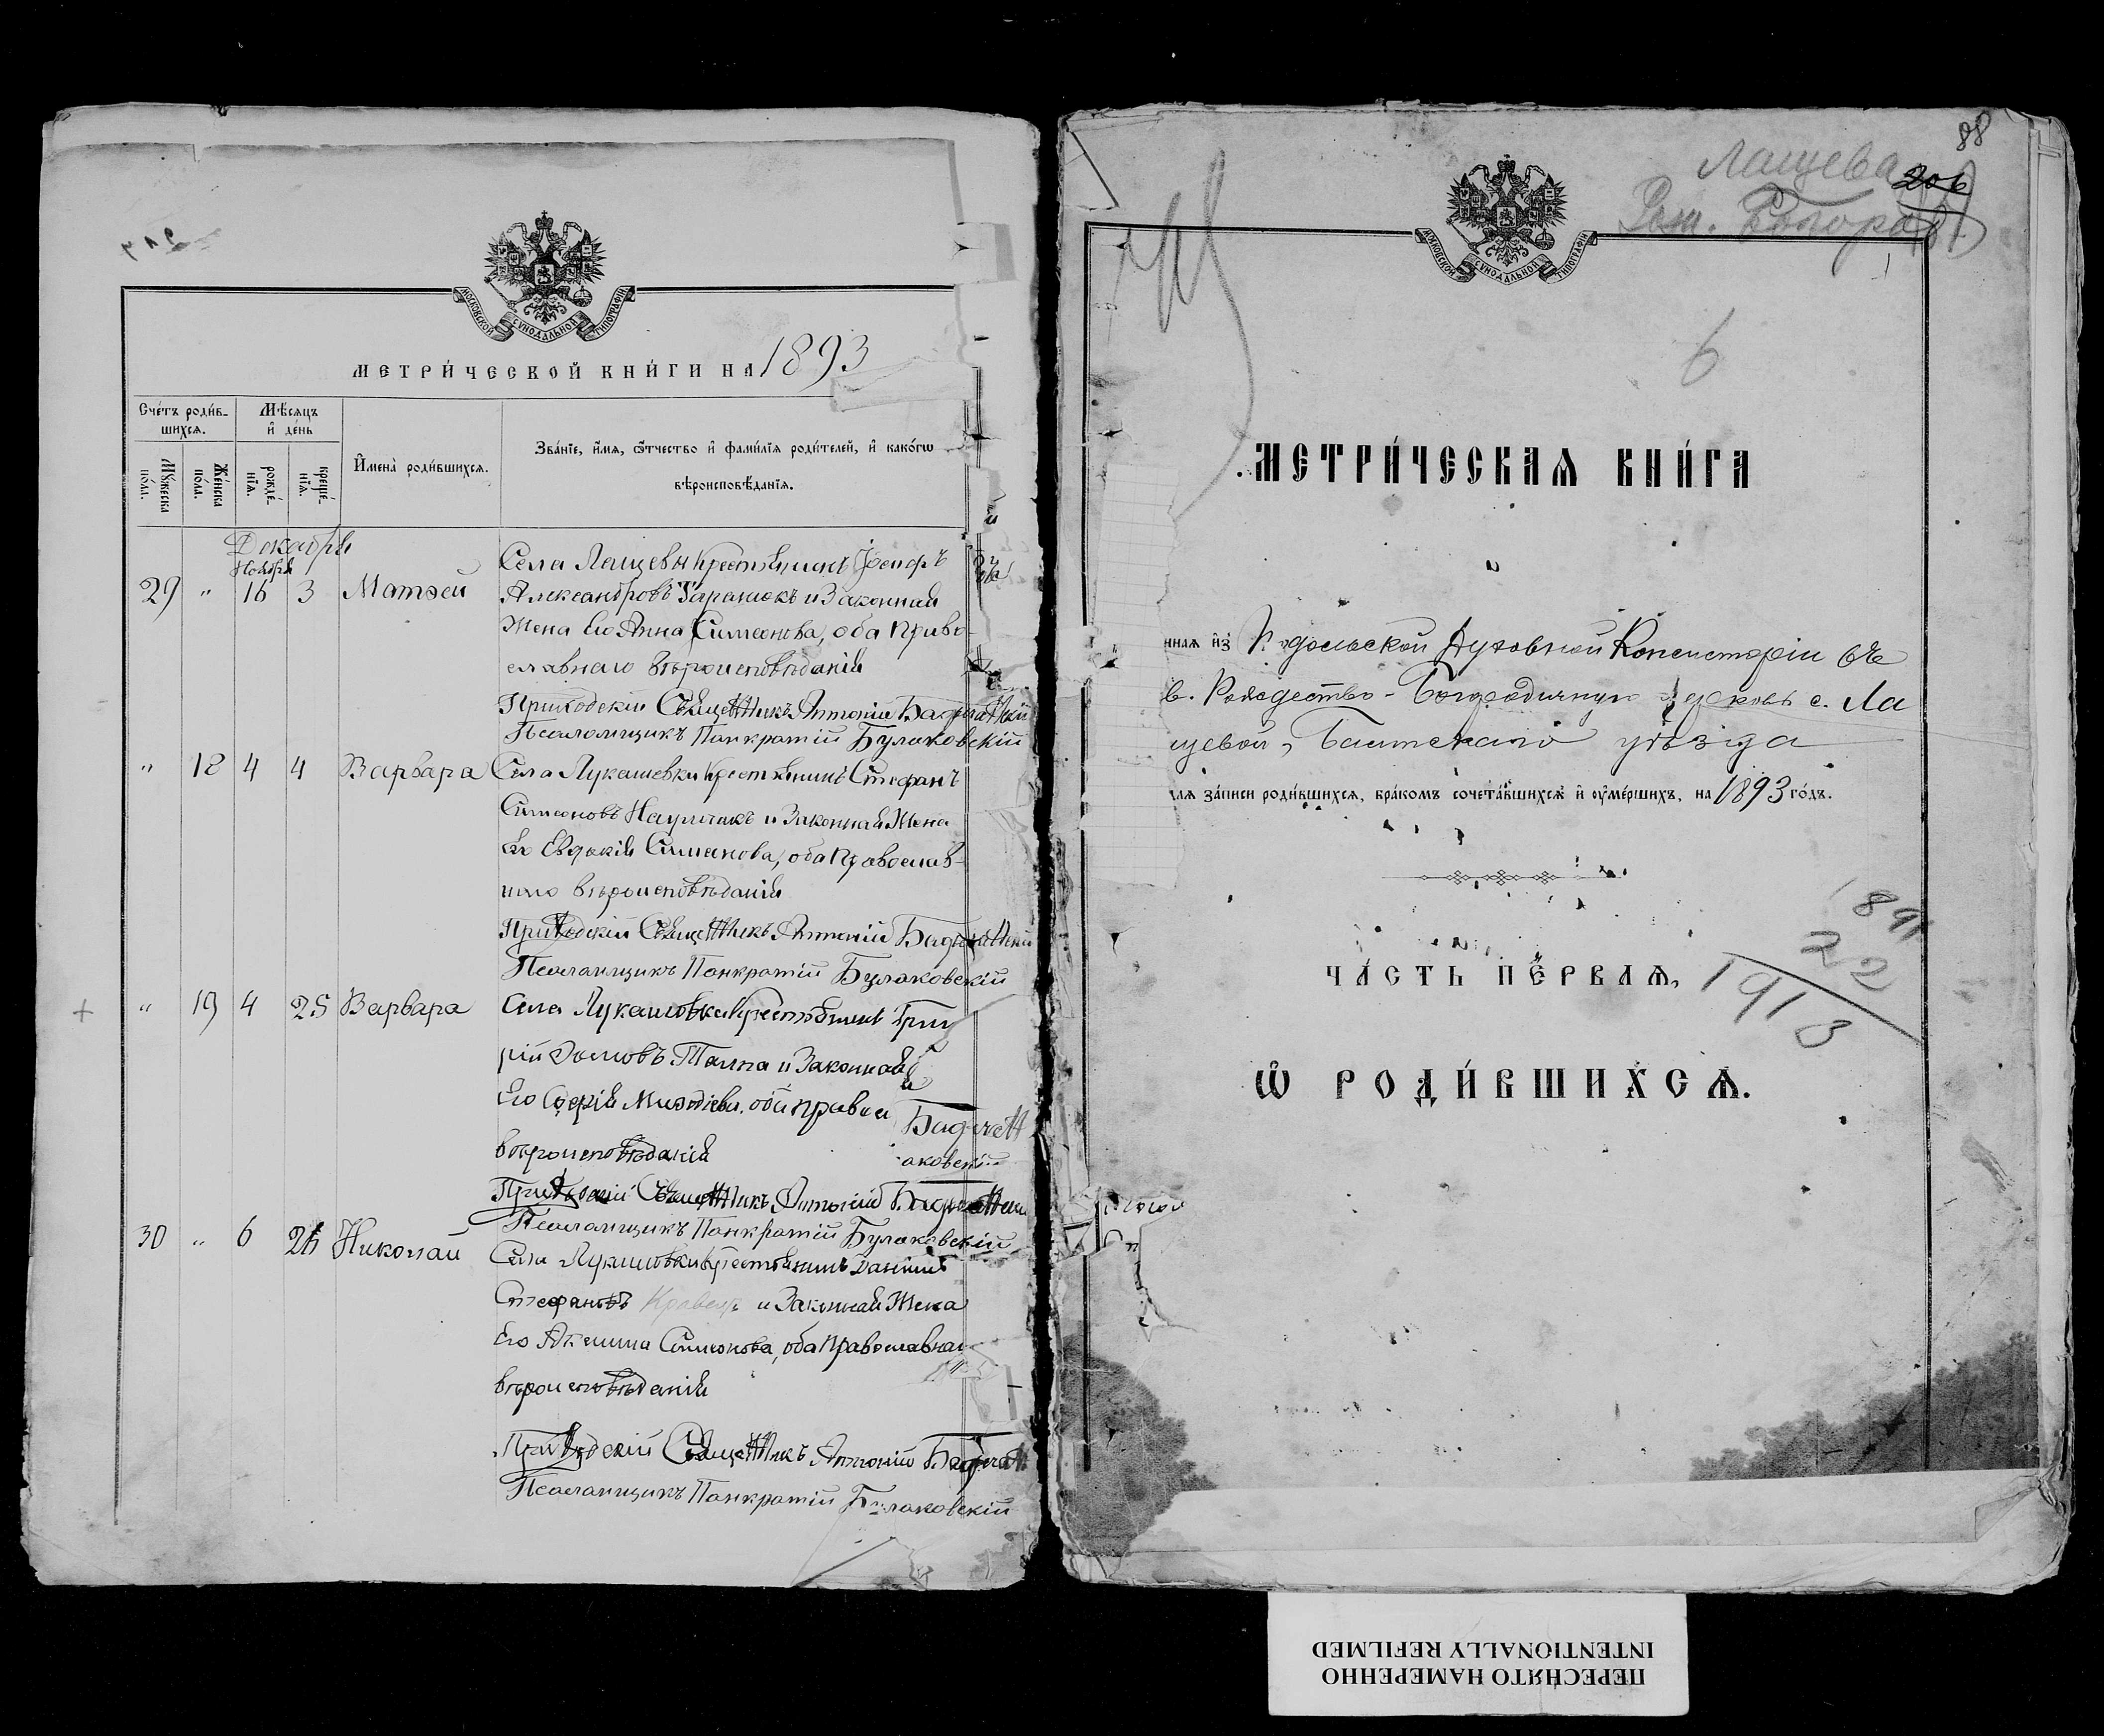 МОСКОВСКОЙ СѴНОДАЛЬНОЙ ТИПОГРАФІИ
МЕТРИ́ЧЕСКОЙ КНИ́ГИ НА 1893
Сче́тъ роди́в-
шихсѧ.
Мѣ́сѧцъ
и҆ де́нь
Мꙋ́жеска
по́ла.
Же́нска
по́ла.
рожде́-
нїѧ.
креще́-
нїѧ.
И҆мена̀ роди́вшихсѧ.
Зва́нїе, и҆́мѧ, ѻ҆́тчество и҆ фами́лїѧ роди́телей, и҆ како́гѡ
вѣроисповѣ́данїѧ.
Декабрь
Ноября
29 " 16 3 Матѳей
Села Лащевы Крестьянинъ Іосифъ
Александровъ Таранюкъ и Законная
Жена Его Анна Симеонова, оба Право-
славнаго вѣроисповѣданія
Приходскій Священникъ Антоній
Псаломщикъ Панкратій Булаковскій
" 18 4 4 Варвара
Села Лукашевки Крестьянинъ Стефанъ
Симеоновъ и Законная Жена
Его Евдокія Симеонова, оба Православ-
наго вѣроисповѣданія
Приходскій Священникъ Антоній
Псаломщикъ Панкратій Булаковскій
+ " 19 4 25 Варвара
Села Лукашовки Крестьянинъ Григ
рій и Законная
Его Софія оба правос
вѣроисповѣданія
аковскій
Приходскій Священникъ Антоній
Псаломщикъ Панкратій Булаковскій
30 " 6 26 Николай
Села Лукашовки Крестьянинъ Даніилъ
Стефановъ Кравецъ и Законная Жена
Его Симеонова, оба Православнаго
вѣроисповѣданія
Приходскій Священникъ Антоній
Псаломщикъ Панкратій Булаковскій
88
Лащева
206
Рож. Богород
МОСКОВСКОЙ СѴНОДАЛЬНОЙ ТИПОГРАФІИ
6
МЕТРИ́ЧЕСКАѦ КНИ́ГА
ннаѧ и҆з̾ Подольской Духовной Консисторіи въ
в. Рождество-Богородичную Церковь с. Ла
щевой, Балтскаго уѣзда
лѧ за́писи роди́вшихсѧ, бра́комъ сочета́вшихсѧ и҆ ᲂу҆ме́ршихъ, на 1893 го́дъ.
ЧА́СТЬ ПЕ́РВАѦ,
1891
22
1913
Ѽ РОДИ́ВШИХСѦ.
ПЕРЕСНЯТО НАМЕРЕННО
INTENTIONALLY REFILMED